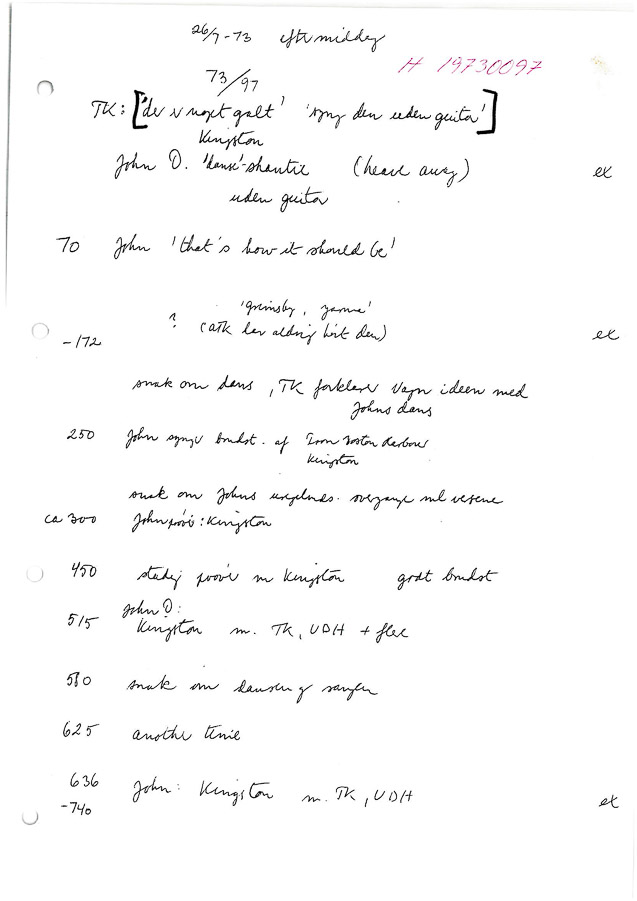 26/7-73 eftermiddag
H 19730097
73/97
TK: ['der er noget galt' 'syng den uden guitar']
Kingston
John D. 'danse'-shantie (heave away) ex
uden guitar
70 John 'that's how it should be'
'Grimsby,
? (ATK har aldrig hørt den)
-172 ex
snak om dans, TK forklarer Vagn ideen med
Johns dans
250 John synger brudst. af From Boston Harbour
Kingston
snak om Johns overgange ml versene
ca 300 John prøver: Kingston
450 stadig prøver m Kingston godt brudst
John D:
515 Kingston m. TK, UDH + flere
580 snak om dansen og sangen
625 another time
636 John: Kingston m. TK, UDH
-740 ex